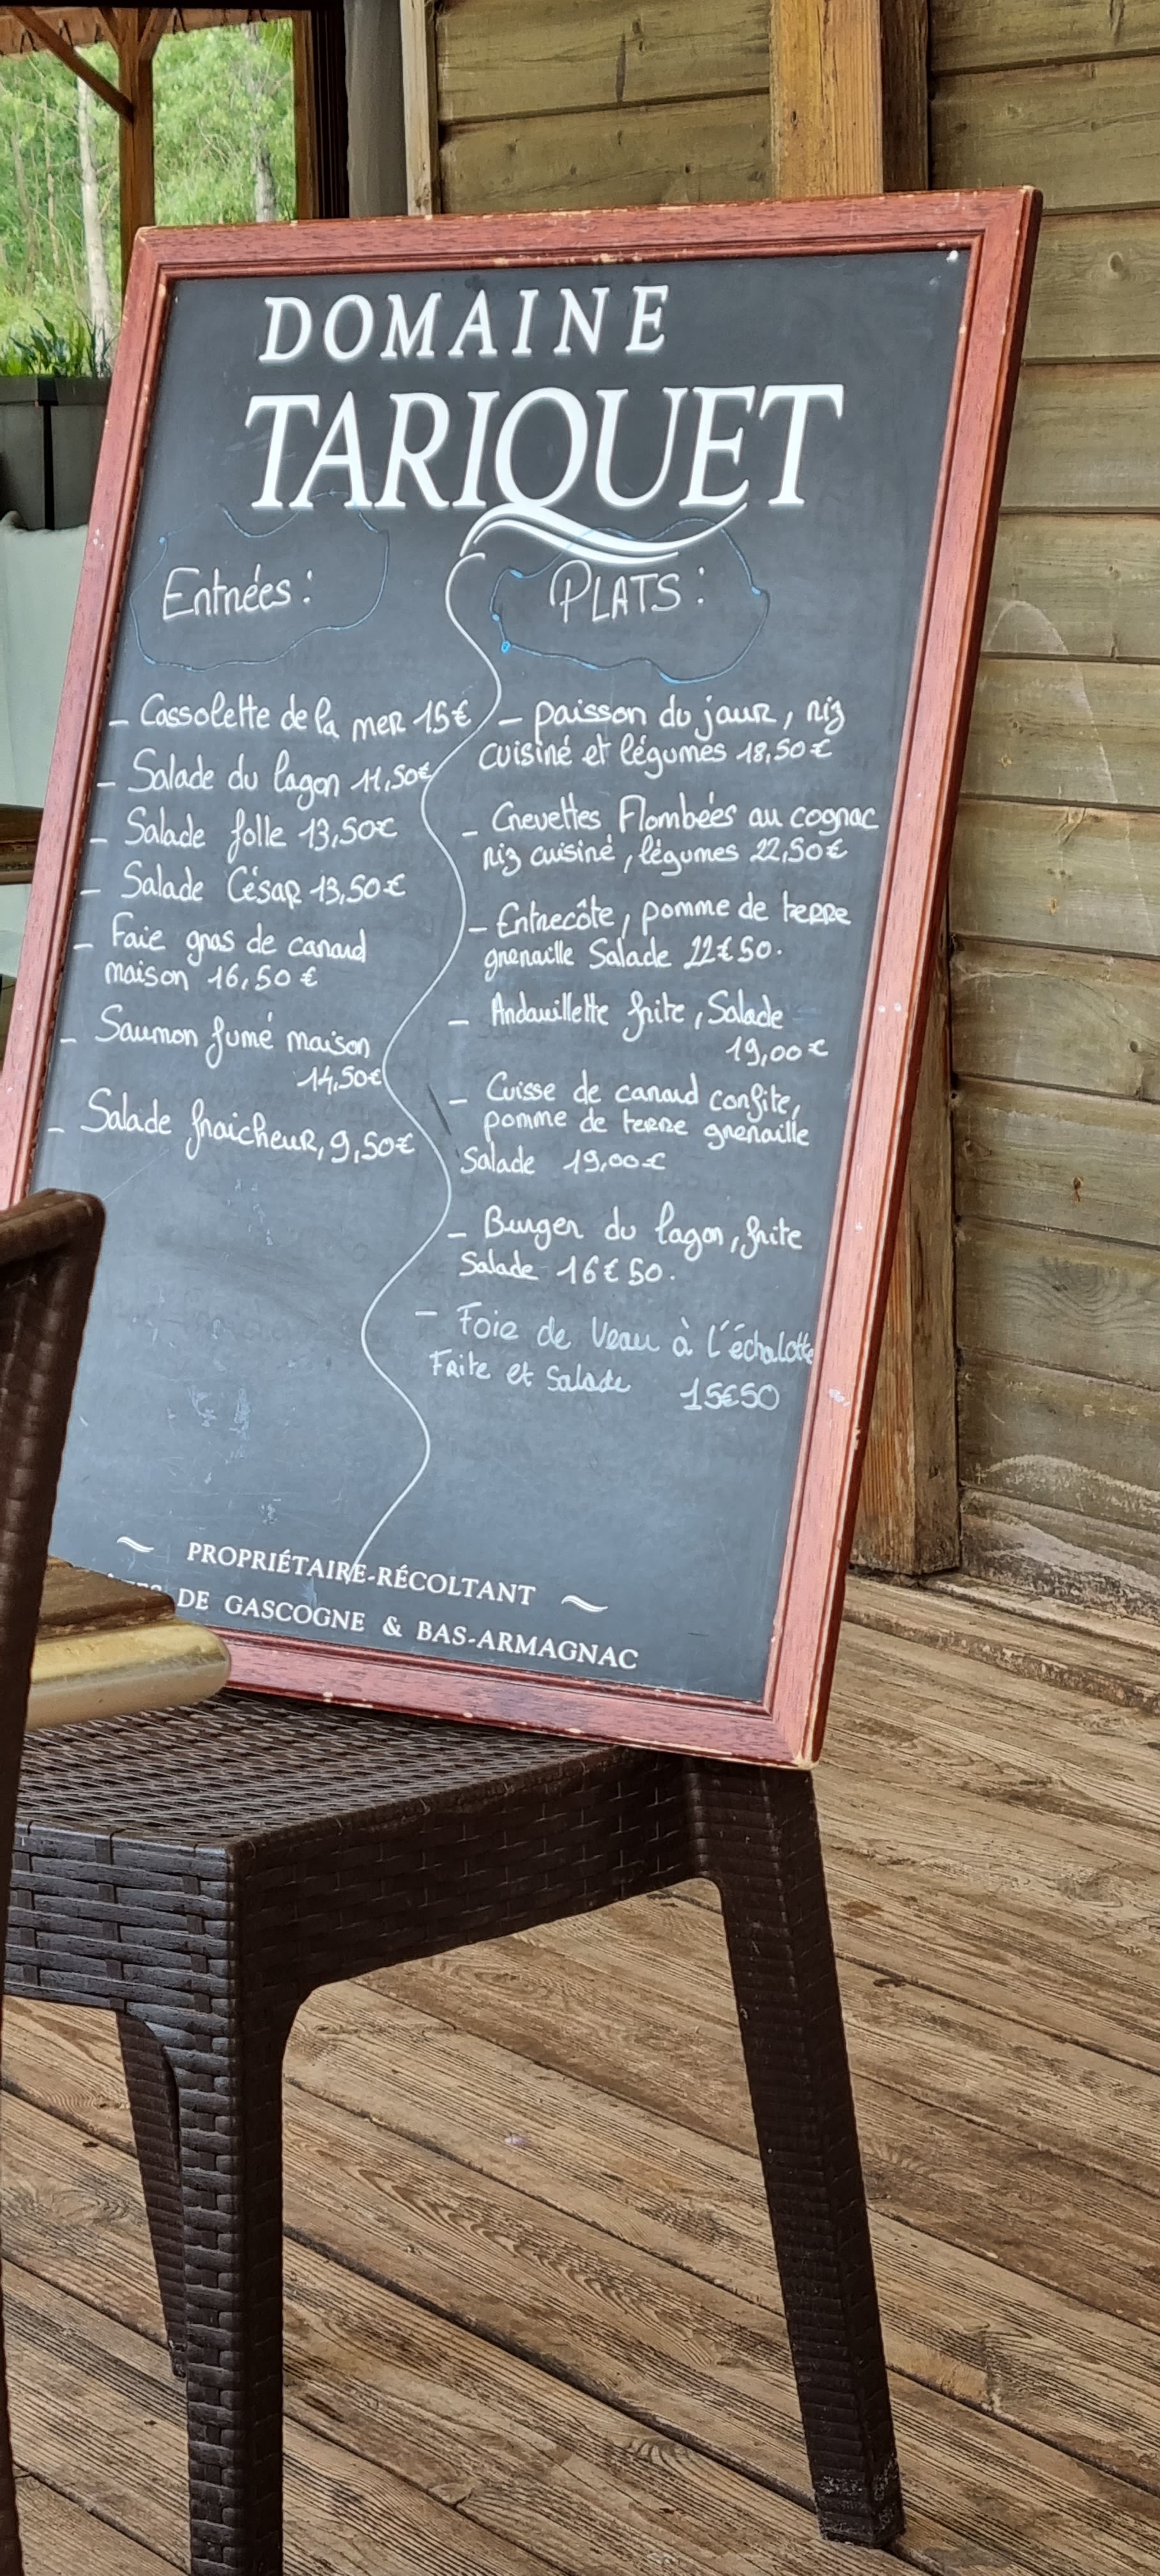 DOMAINE
TARIQUET
Entrées :
- Cassolette de la mer 15€
- Salade du lagon 11,50€
- Salade folle 13,50€
- Salade César 13,50€
- Foie gras de canard
maison 16,50 €
- Saumon fumé maison
14,50€
- Salade fraicheur, 9,50€
PLATS :
- poisson du jour, riz
cuisiné et légumes 18,50€
- Crevettes Flambées au cognac
riz cuisiné, légumes 22,50€
- Entrecôte, pomme de terre
grenaille Salade 22€50.
- Andouillette frite, Salade
19,00€
- Cuisse de canard confite,
pomme de terre grenaille
Salade 19,00€
- Burger du lagon, frite
Salade 16€50.
- Foie de Veau à L'échalotte
Frite et Salade 15€50
PROPRIÉTAIRE-RÉCOLTANT
DE GASCOGNE & BAS-ARMAGNAC